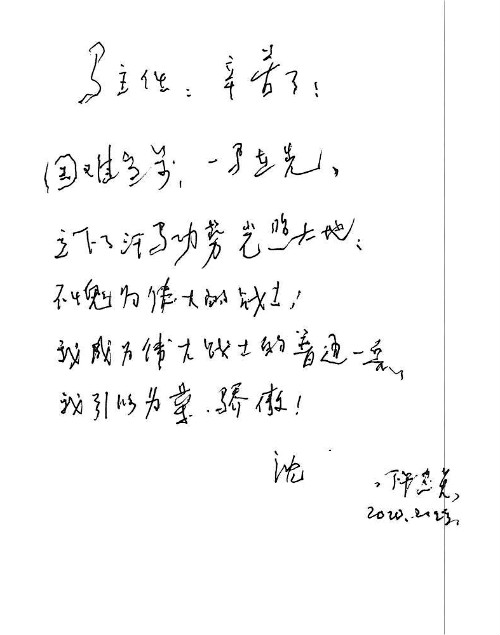 马主任：辛苦了！
国难当前，一马当先、
立下了汗马功劳光照大地：
不愧为伟大的战士！
我成为伟大战士的普通一员、
我引以为荣、骄傲！
沈
2020.2.